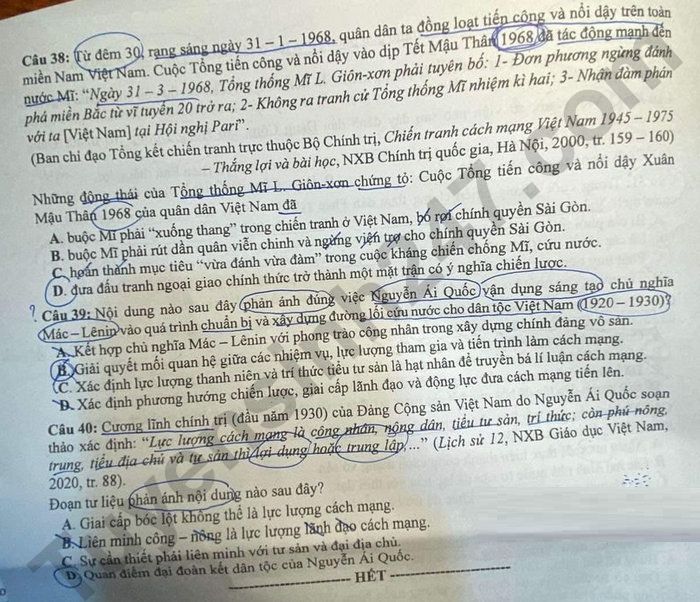 Câu 38: Từ đêm 30, rạng sáng ngày 31 – 1 – 1968, quân dân ta đồng loạt tiến công và nổi dậy trên toàn
miền Nam Việt Nam. Cuộc Tổng tiến công và nổi dậy vào dịp Tết Mậu Thân 1968 đã tác động mạnh đến
nước Mĩ: “Ngày 31 – 3 – 1968, Tổng thống Mĩ L. Giôn-xơn phải tuyên bố: 1- Đơn phương ngừng đánh
phá miền Bắc từ vĩ tuyến 20 trở ra; 2- Không ra tranh cử Tổng thống Mĩ nhiệm kì hai; 3- Nhận đàm phán
với ta [Việt Nam] tại Hội nghị Pari”.
(Ban chỉ đạo Tổng kết chiến tranh trực thuộc Bộ Chính trị, Chiến tranh cách mạng Việt Nam 1945 – 1975
– Thắng lợi và bài học, NXB Chính trị quốc gia, Hà Nội, 2000, tr. 159 – 160)
Những động thái của Tổng thống Mĩ L. Giôn-xơn chứng tỏ: Cuộc Tổng tiến công và nổi dậy Xuân
Mậu Thân 1968 của quân dân Việt Nam đã
A. buộc Mĩ phải “xuống thang” trong chiến tranh ở Việt Nam, bỏ rơi chính quyền Sài Gòn.
B. buộc Mĩ phải rút dần quân viễn chinh và ngừng viện trợ cho chính quyền Sài Gòn.
C. hoàn thành mục tiêu “vừa đánh vừa đàm” trong cuộc kháng chiến chống Mĩ, cứu nước.
D. đưa đấu tranh ngoại giao chính thức trở thành một mặt trận có ý nghĩa chiến lược.
? Câu 39: Nội dung nào sau đây phản ánh đúng việc Nguyễn Ái Quốc vận dụng sáng tạo chủ nghĩa
Mác – Lênin vào quá trình chuẩn bị và xây dựng đường lối cứu nước cho dân tộc Việt Nam (1920 – 1930)?
A. Kết hợp chủ nghĩa Mác – Lênin với phong trào công nhân trong xây dựng chính đảng vô sản.
B. Giải quyết mối quan hệ giữa các nhiệm vụ, lực lượng tham gia và tiến trình làm cách mạng.
C. Xác định lực lượng thanh niên và trí thức tiểu tư sản là hạt nhân để truyền bá lí luận cách mạng.
D. Xác định phương hướng chiến lược, giai cấp lãnh đạo và động lực đưa cách mạng tiến lên.
Câu 40: Cương lĩnh chính trị (đầu năm 1930) của Đảng Cộng sản Việt Nam do Nguyễn Ái Quốc soạn
thảo xác định: “Lực lượng cách mạng là công nhân, nông dân, tiểu tư sản, trí thức; còn phú nông,
trung, tiểu địa chủ và tư sản thì lợi dụng hoặc trung lập,...” (Lịch sử 12, NXB Giáo dục Việt Nam,
2020, tr. 88).
Đoạn tư liệu phản ánh nội dung nào sau đây?
A. Giai cấp bóc lột không thể là lực lượng cách mạng.
B. Liên minh công – nông là lực lượng lãnh đạo cách mạng.
C. Sự cần thiết phải liên minh với tư sản và đại địa chủ.
D. Quan điểm đại đoàn kết dân tộc của Nguyễn Ái Quốc.
HẾT
Tuyensinh247.com